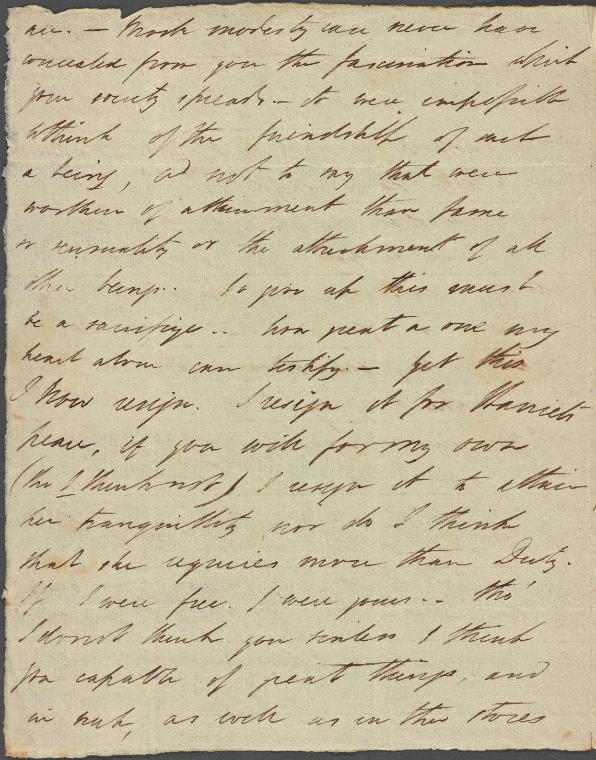 are. — Mock modesty can never have
concealed from you the fascination which
your society spreads — it were impossible
to think of the friendship of such
a being, and not to say that were
worthier of attainment than fame
or sensuality or the attachment of all
other beings. To give up this must
be a sacrifize.. how great a one my
heart alone can testify. — Yet this
I now resign. I resign it for Harriets
peace, if you will for my own
(tho I think not) I resign it to attain
her tranquillity, nor do I think
that she requires more than Duty.
If I were free. I were yours.. tho'
I do not think you sinless I think
you capable of great things, and
in such, as well as in the stores